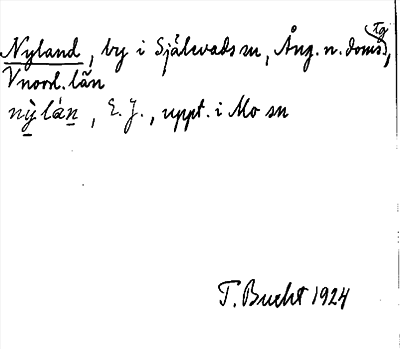 Nyland, by i Själevads sn, Ång. n. doms. tg,
Vnorrl. län
nỳlán, E. J., uppt. i Mo sn
T. Bucht 1924